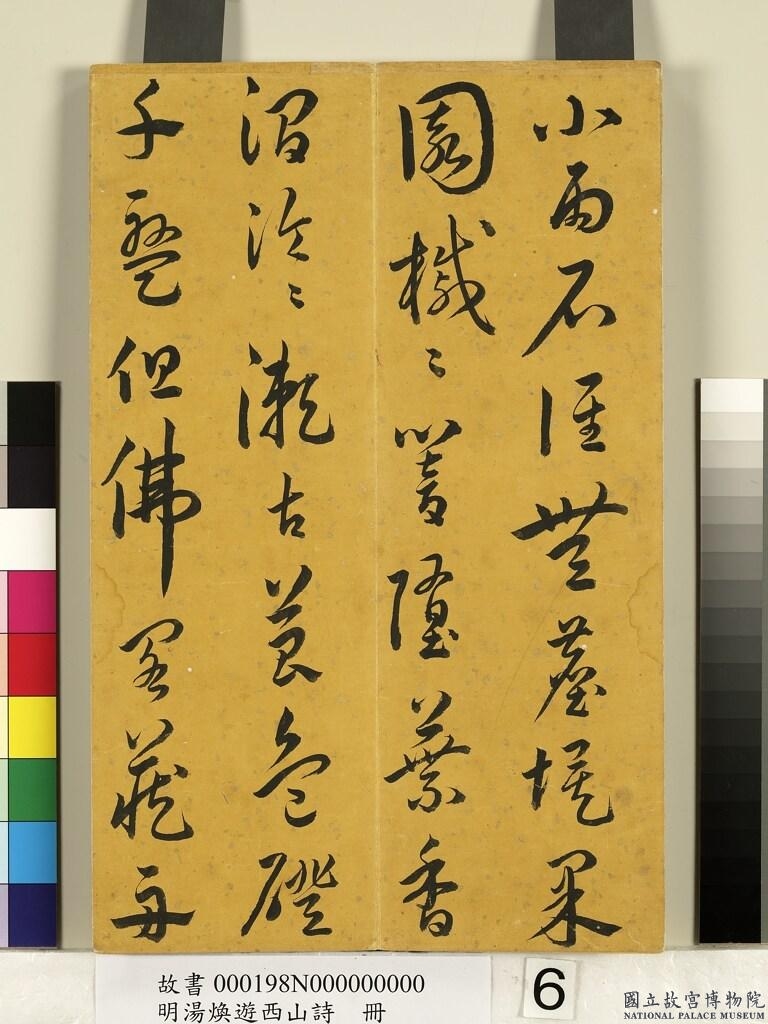 小雨石徑無塵埃果
園槭〻響墮葉香
澗泠〻漱古苔危磴
千盤但佛閣藏舟
故書 000198N000000000
明湯煥遊西山詩 冊
6
國立故宮博物院
NATIONAL PALACE MUSEUM